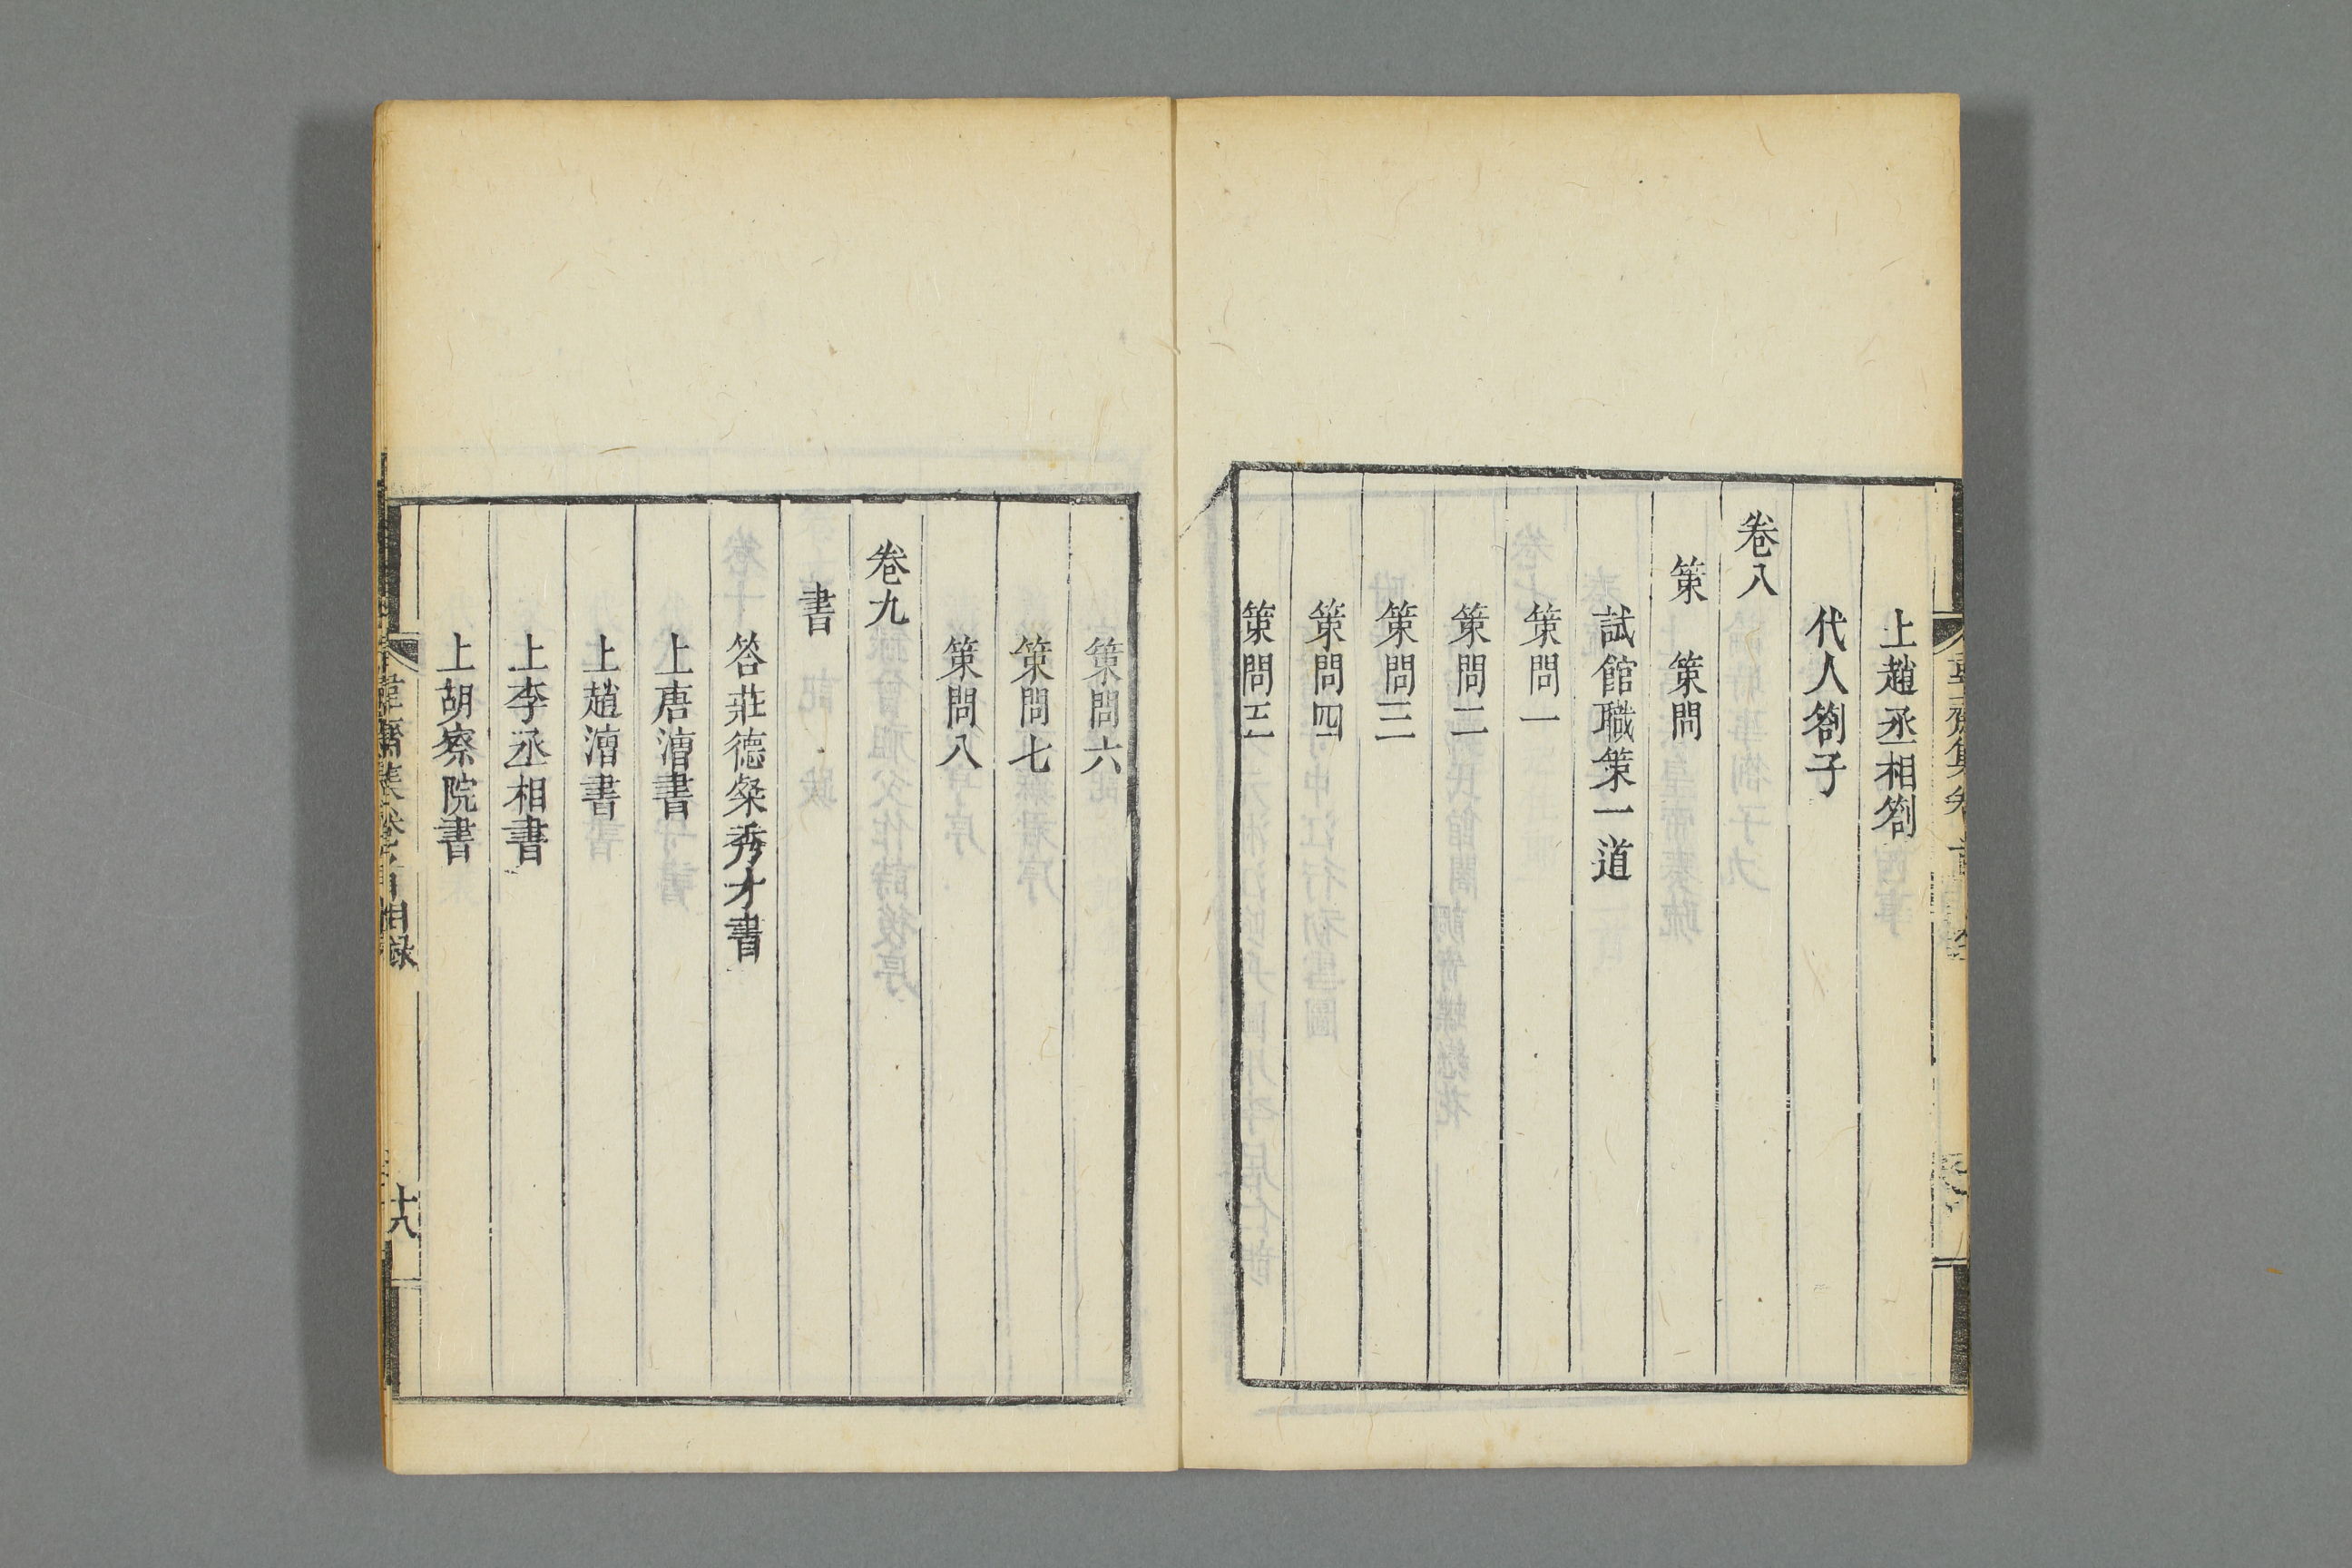 上趙丞相劄
代人劄子
卷八
策　策問
試館職策一道
策問一
策問二
策問三
策問四
策問五
策問六
策問七
策問八
卷九
書
答莊德粲秀才書
上唐漕書
上趙漕書
上李丞相書
上胡察院書
韋齋集卷首目錄
十八